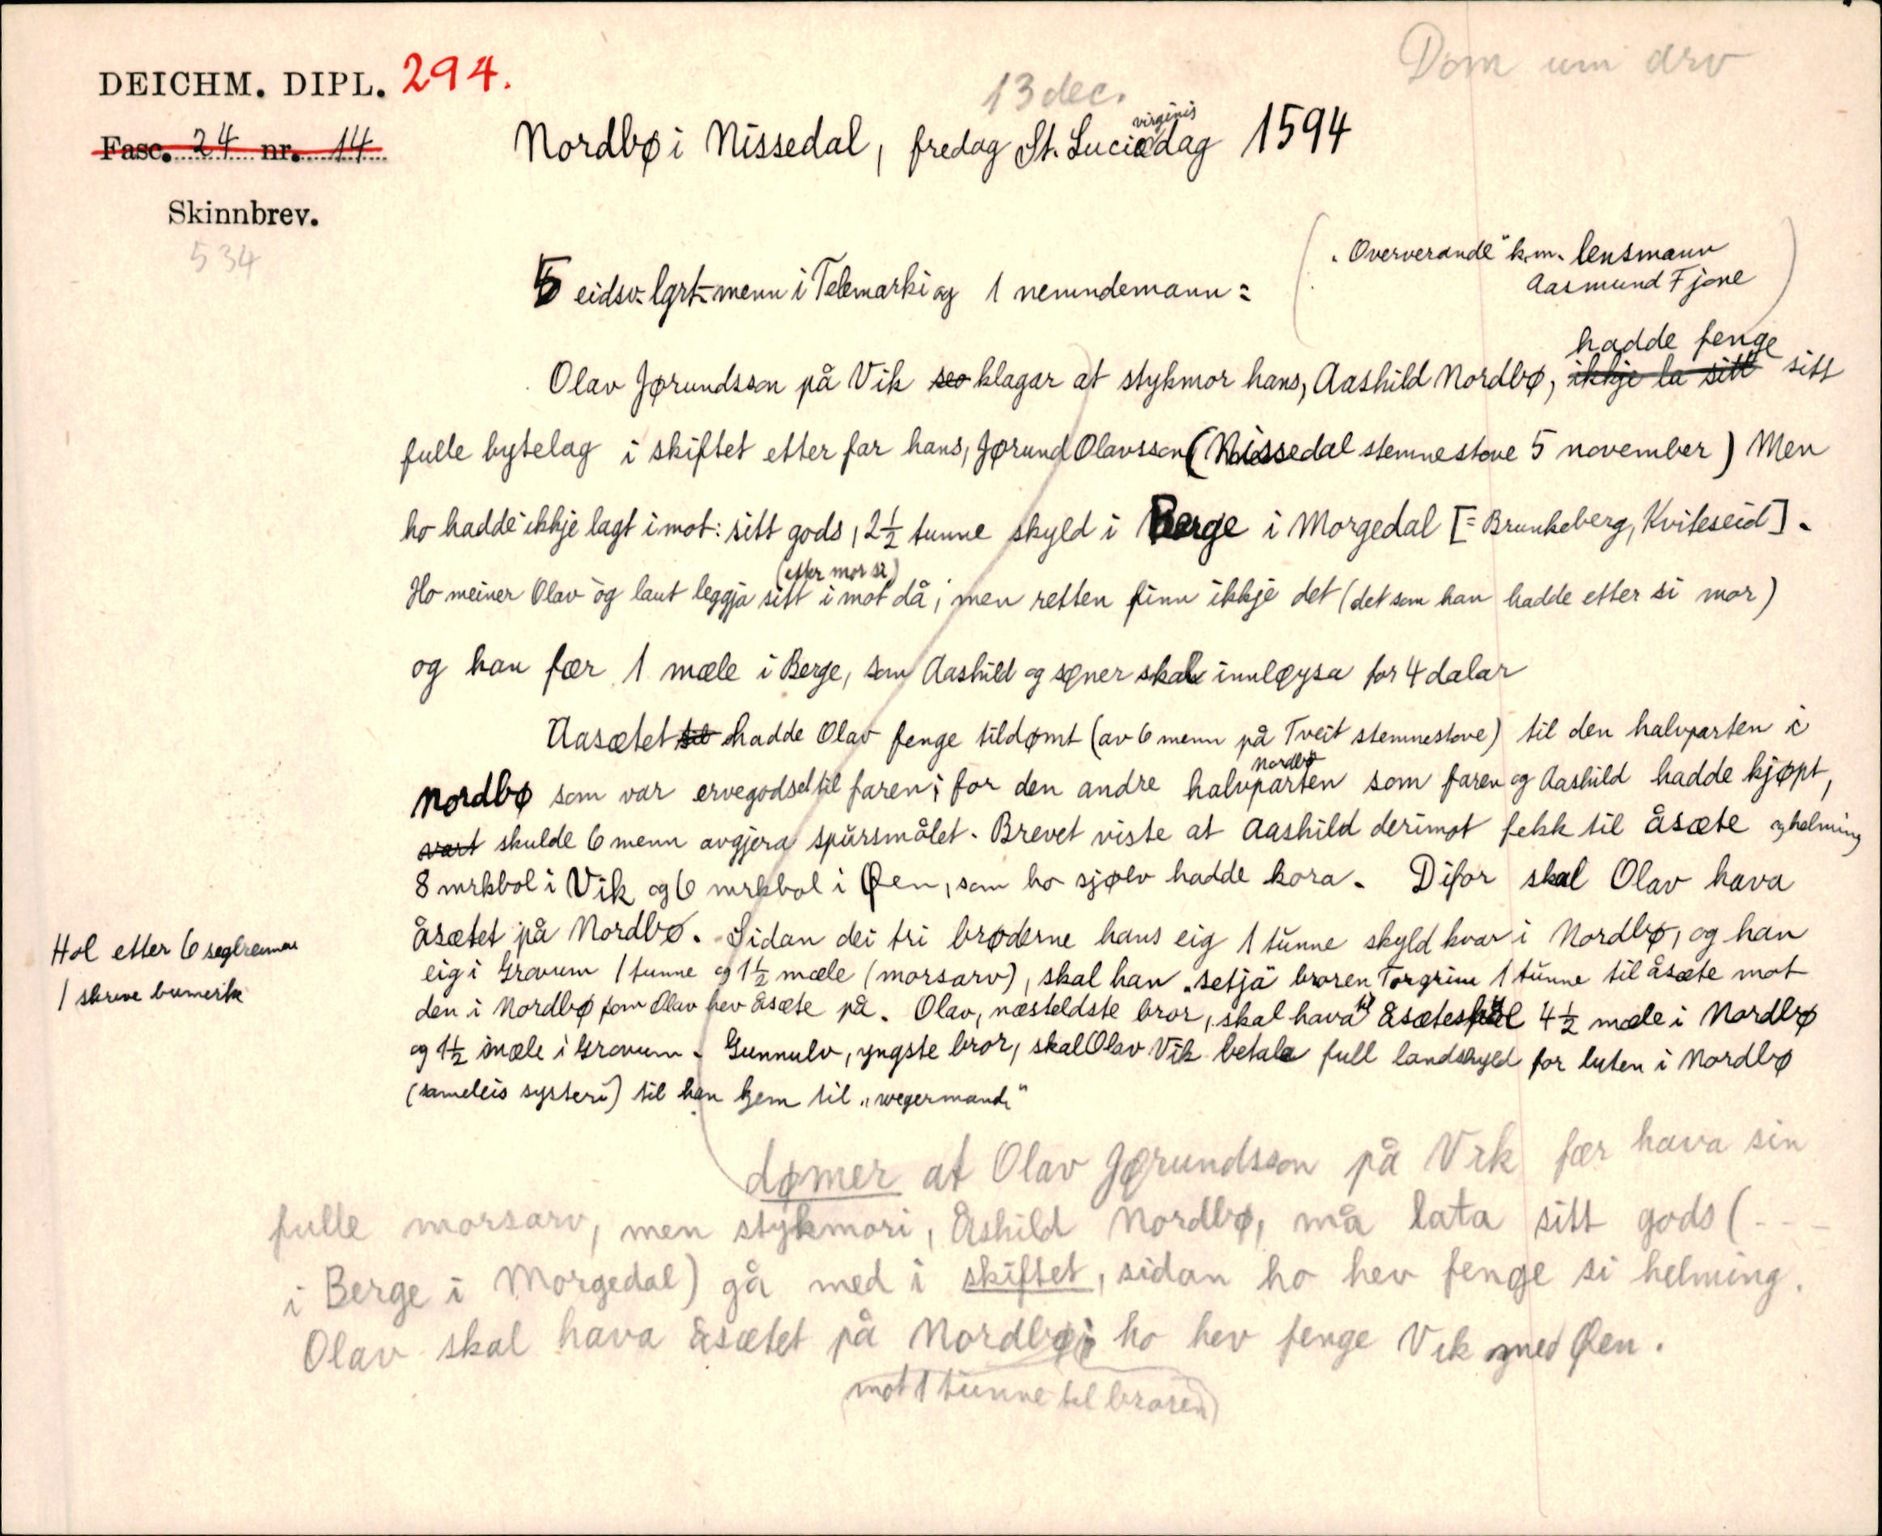 Dom um arv
DEICHM. DIPL. 294.
13 dec.
Fasc. 24 nr. 14
virginis
Nordbø i Nissedal, fredag St. Luciædag 1594
Skinnbrev.
534
„Oververande" k.m. lensmann
Aasmund Fjone
5 eidsv. lgrt-menn i Telemarki og 1 nemndemann:
hadde fenge
Olav Jørundsson på Vik seo klagar at stykmor hans, Aashild Nordbø, ikkje la sitt sitt
fulle bytelag i skiftet etter far hans, Jørund Olavsson (Nissedal stemnestove 5 november) Men
ho hadde ikkje lagt imot: sitt gods, 2½ tunne skyld i Berge i Morgedal [= Brunkeberg, Kviteseid].
(etter mor si)
Ho meiner Olav òg laut leggja sitt imot då; men retten finn ikkje det (det som han hadde etter si mor)
og han fær 1 mæle i Berge, som Aashild og søner skal innløysa for 4 dalar
Aasætet til hadde Olav fenge tildømt (av 6 menn på Tveit stemnestove) til den halvparten i
Nordbø
Nordbø som var ervegodset til faren; for den andre halvparten som faren og Aashild hadde kjøpt,
vart skulde 6 menn avgjera spursmålet. Brevet viste at Aashild derimot fekk til åsæte og helming
8 mrkbol i Vik og 6 mrkbol i Øen, som ho sjølv hadde kora. Difor skal Olav hava
åsætet på Nordbø. Sidan dei tri brøderne hans eig 1 tunne skyld kvar i Nordbø, og han
Hol etter 6 seglreimar
eig i Gravum 1 tunne og 1½ mæle (morsarv), skal han „setja broren Torgrim 1 tunne til åsæte mot
1 skrive bumerke
den i Nordbø som Olav hev åsæte på. Olav, næsteldste bror, skal hava til åsætes 4½ mæle i Nordbø
og 1½ mæle i Gravum. Gunnulv, yngste bror, skal Olav Vik betala full landskyld for luten i Nordbø
(sameleis systeri) til han kjem til „wegermand"
dømer at Olav Jørundsson på Vik fær hava sin
fulle morsarv, men stykmori, Åshild Nordbø, må lata sitt gods (---
i Berge i Morgedal) gå med i skiftet, sidan ho hev fenge si helming.
Olav skal hava åsætet på Nordbø; ho hev fenge Vik med Øen.
(mot 1 tunne til broren)